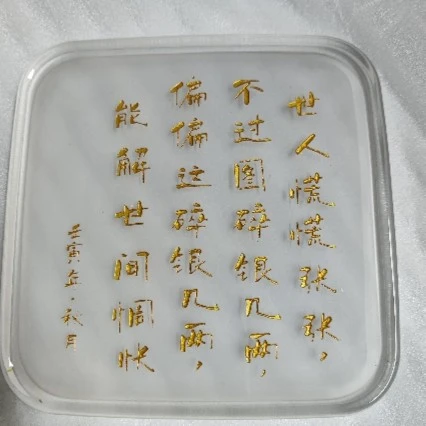 世人慌慌张张，
不过圖碎银几两，
偏偏这碎银几两，
能解世间惆怅
壬寅年·秋月